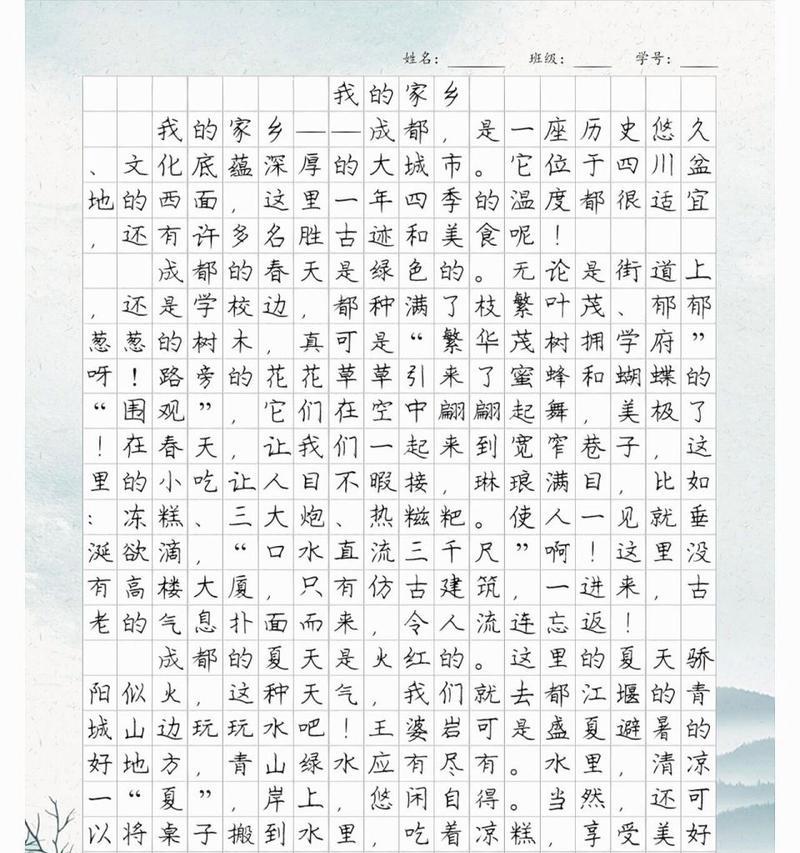 姓名： 班级： 学号：
我的家乡
我的家乡——成都，是一座历史悠久
、文化底蕴深厚的大城市。它位于四川盆
地的西面，这里一年四季的温度都很适宜
，还有许多名胜古迹和美食呢！
成都的春天是绿色的。无论是街道上
，还是学校边，都种满了枝繁叶茂、郁郁
葱葱的树木，真可是“繁华茂树拥学府”
呀！路旁的花花草草引来了蜜蜂和蝴蝶的
“围观”，它们在空中翩翩起舞，美极了
！在春天，让我们一起来到宽窄巷子，这
里的小吃让人目不暇接，琳琅满目，比如
：冻糕、三大炮、热糍粑。使人一见就垂
涎欲滴，“口水直流三千尺”啊！这里没
有高楼大厦，只有仿古建筑，一进来，古
老的气息扑面而来，令人流连忘返！
成都的夏天是火红的。这里的夏天骄
阳似火，这种天气，我们就去都江堰的青
城山边玩玩水吧！王婆岩可是盛夏避暑的
好地方，青山绿水应有尽有。水里，清凉
一“夏”，岸上，悠闲自得。当然，还可
以将桌子搬到水里，吃着凉糕，享受美好